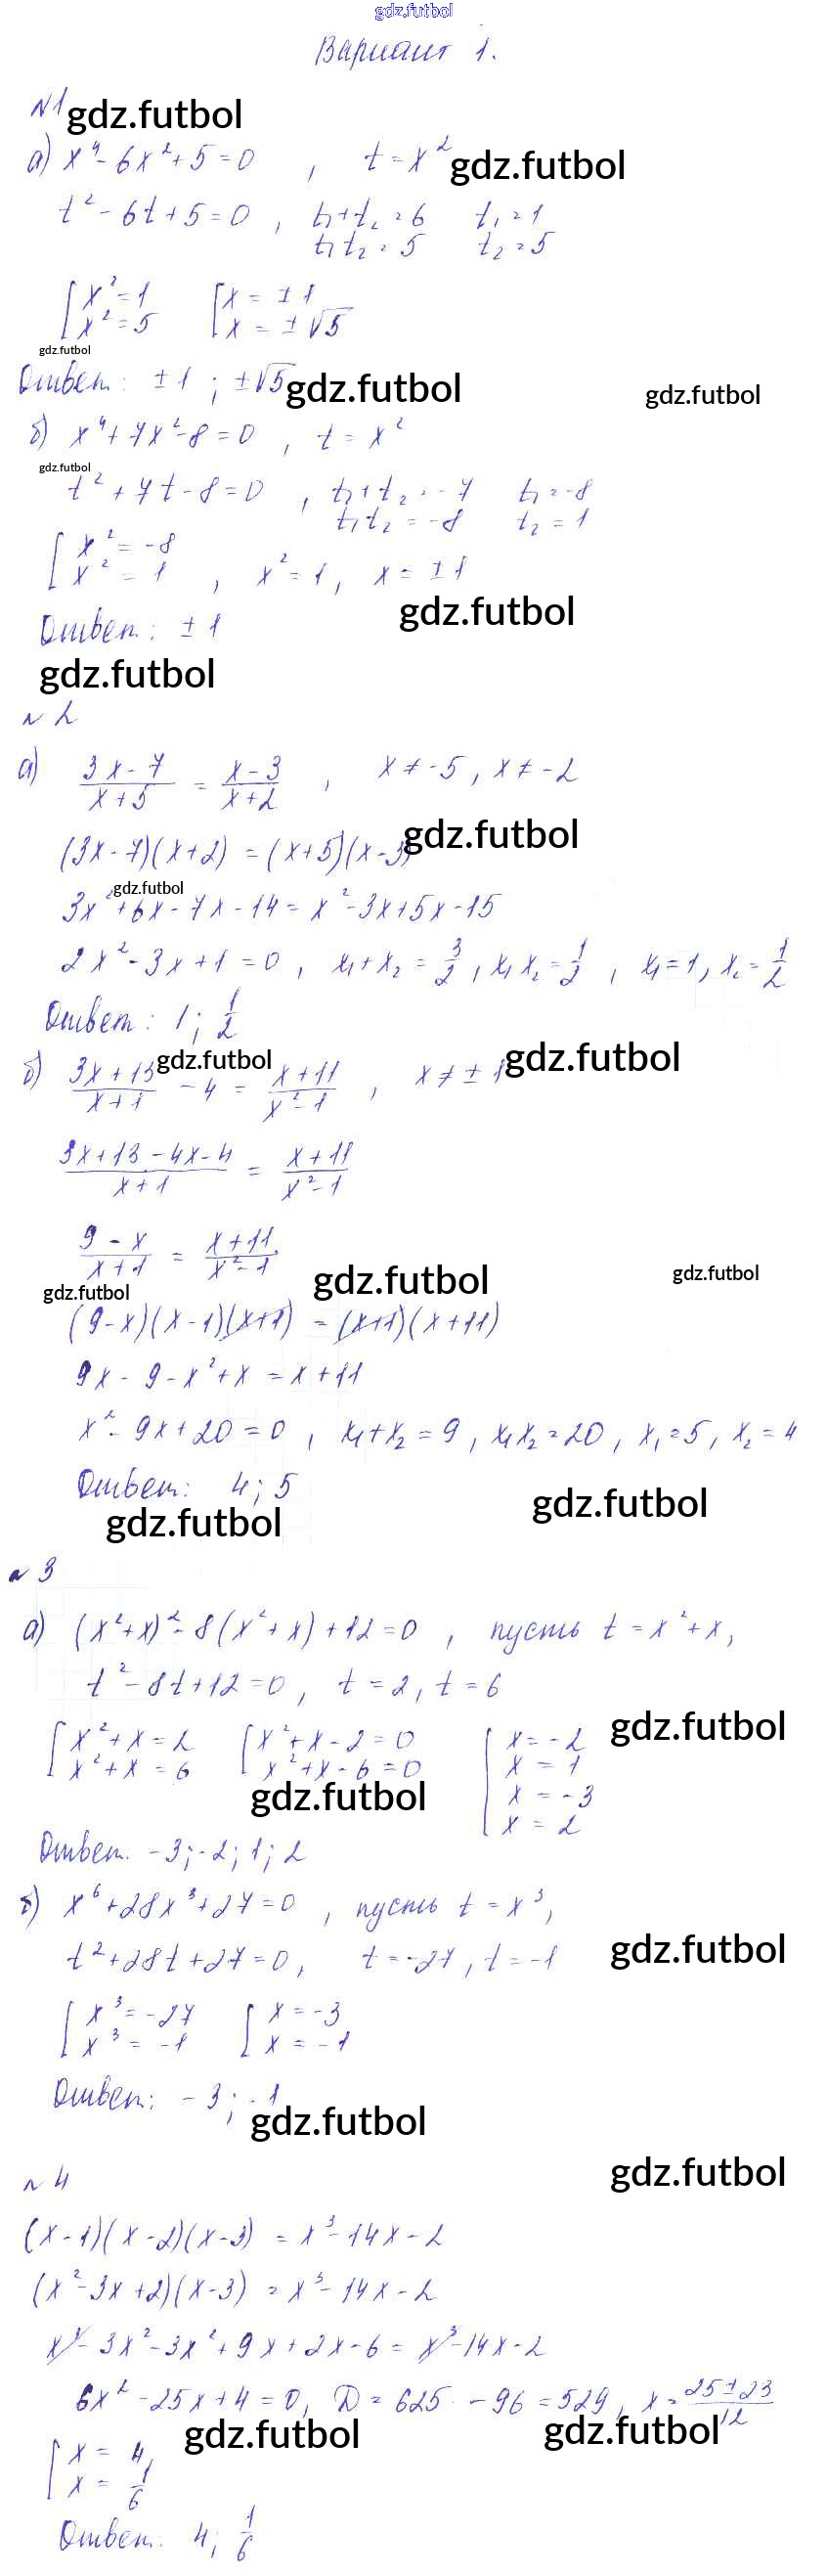 gdz.futbol
Вариант 1.
N1 gdz.futbol
а) x⁴ - 6x² + 5 = 0 , t = x² gdz.futbol
t² - 6t + 5 = 0 , t₁ + t₂ = 6 t₁ = 1
t₁ t₂ = 5 t₂ = 5
[ x² = 1 [ x = ± 1
x² = 5 x = ± √5
gdz.futbol
Ответ: ± 1 ; ± √5 gdz.futbol gdz.futbol
б) x⁴ + 7x² - 8 = 0 , t = x²
gdz.futbol
t² + 7t - 8 = 0 , t₁ + t₂ = -7 t₁ = -8
t₁ t₂ = -8 t₂ = 1
[ x² = -8
x² = 1 , x² = 1, x = ± 1
gdz.futbol
Ответ: ± 1
gdz.futbol
N 2
а) (3x - 7)/(x + 5) = (x - 3)/(x + 2) , x ≠ -5, x ≠ -2
(3x - 7)(x + 2) = (x + 5)(x - 3) gdz.futbol
gdz.futbol
3x² + 6x - 7x - 14 = x² - 3x + 5x - 15
2x² - 3x + 1 = 0 , x₁ + x₂ = 3/2 , x₁ x₂ = 1/2 , x₁ = 1, x₂ = 1/2
Ответ: 1; 1/2
б) (3x + 13)/(x + 1) gdz.futbol - 4 = (x + 11)/(x² - 1) , x ≠ ± 1 gdz.futbol
(3x + 13 - 4x - 4)/(x + 1) = (x + 11)/(x² - 1)
(9 - x)/(x + 1) = (x + 11)/(x² - 1)
gdz.futbol gdz.futbol gdz.futbol
(9 - x)(x - 1)(x + 1) = (x + 1)(x + 11)
9x - 9 - x² + x = x + 11
x² - 9x + 20 = 0 , x₁ + x₂ = 9 , x₁ x₂ = 20, x₁ = 5, x₂ = 4
Ответ: 4; 5
gdz.futbol gdz.futbol
N 3
а) (x² + x)² - 8(x² + x) + 12 = 0 , пусть t = x² + x,
t² - 8t + 12 = 0, t = 2, t = 6
gdz.futbol
[ x² + x = 2 [ x² + x - 2 = 0 [ x = -2
x² + x = 6 x² + x - 6 = 0 x = 1
gdz.futbol x = -3
x = 2
Ответ. -3; -2; 1; 2
б) x⁶ + 28x³ + 27 = 0 , пусть t = x³,
t² + 28t + 27 = 0, t = -27, t = -1 gdz.futbol
[ x³ = -27 [ x = -3
x³ = -1 x = -1
Ответ: -3; -1
gdz.futbol
gdz.futbol
N 4
(x - 1)(x - 2)(x - 3) = x³ - 14x - 2
(x² - 3x + 2)(x - 3) = x³ - 14x - 2
x³ - 3x² - 3x² + 9x + 2x - 6 = x³ - 14x - 2
6x² - 25x + 4 = 0, D = 625 - 96 = 529, x = (25 ± 23)/12
gdz.futbol gdz.futbol
[ x = 4,
x = 1/6
Ответ: 4; 1/6